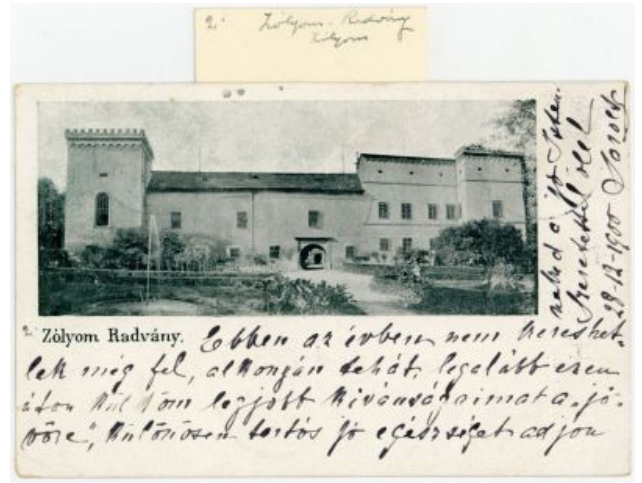 2. Zólyom-Radvány
Zólyom
Zólyom Radvány.
Ebben az évben nem kereshet-
lek még fel, alkonyán tehát, legalább ezen
úton küldöm legjobb kivánságaimat a „jö-
vőre", különösen tartós jó egészséget adjon
neked a jó Isten.
Szeretettel ölel
28-12-1900